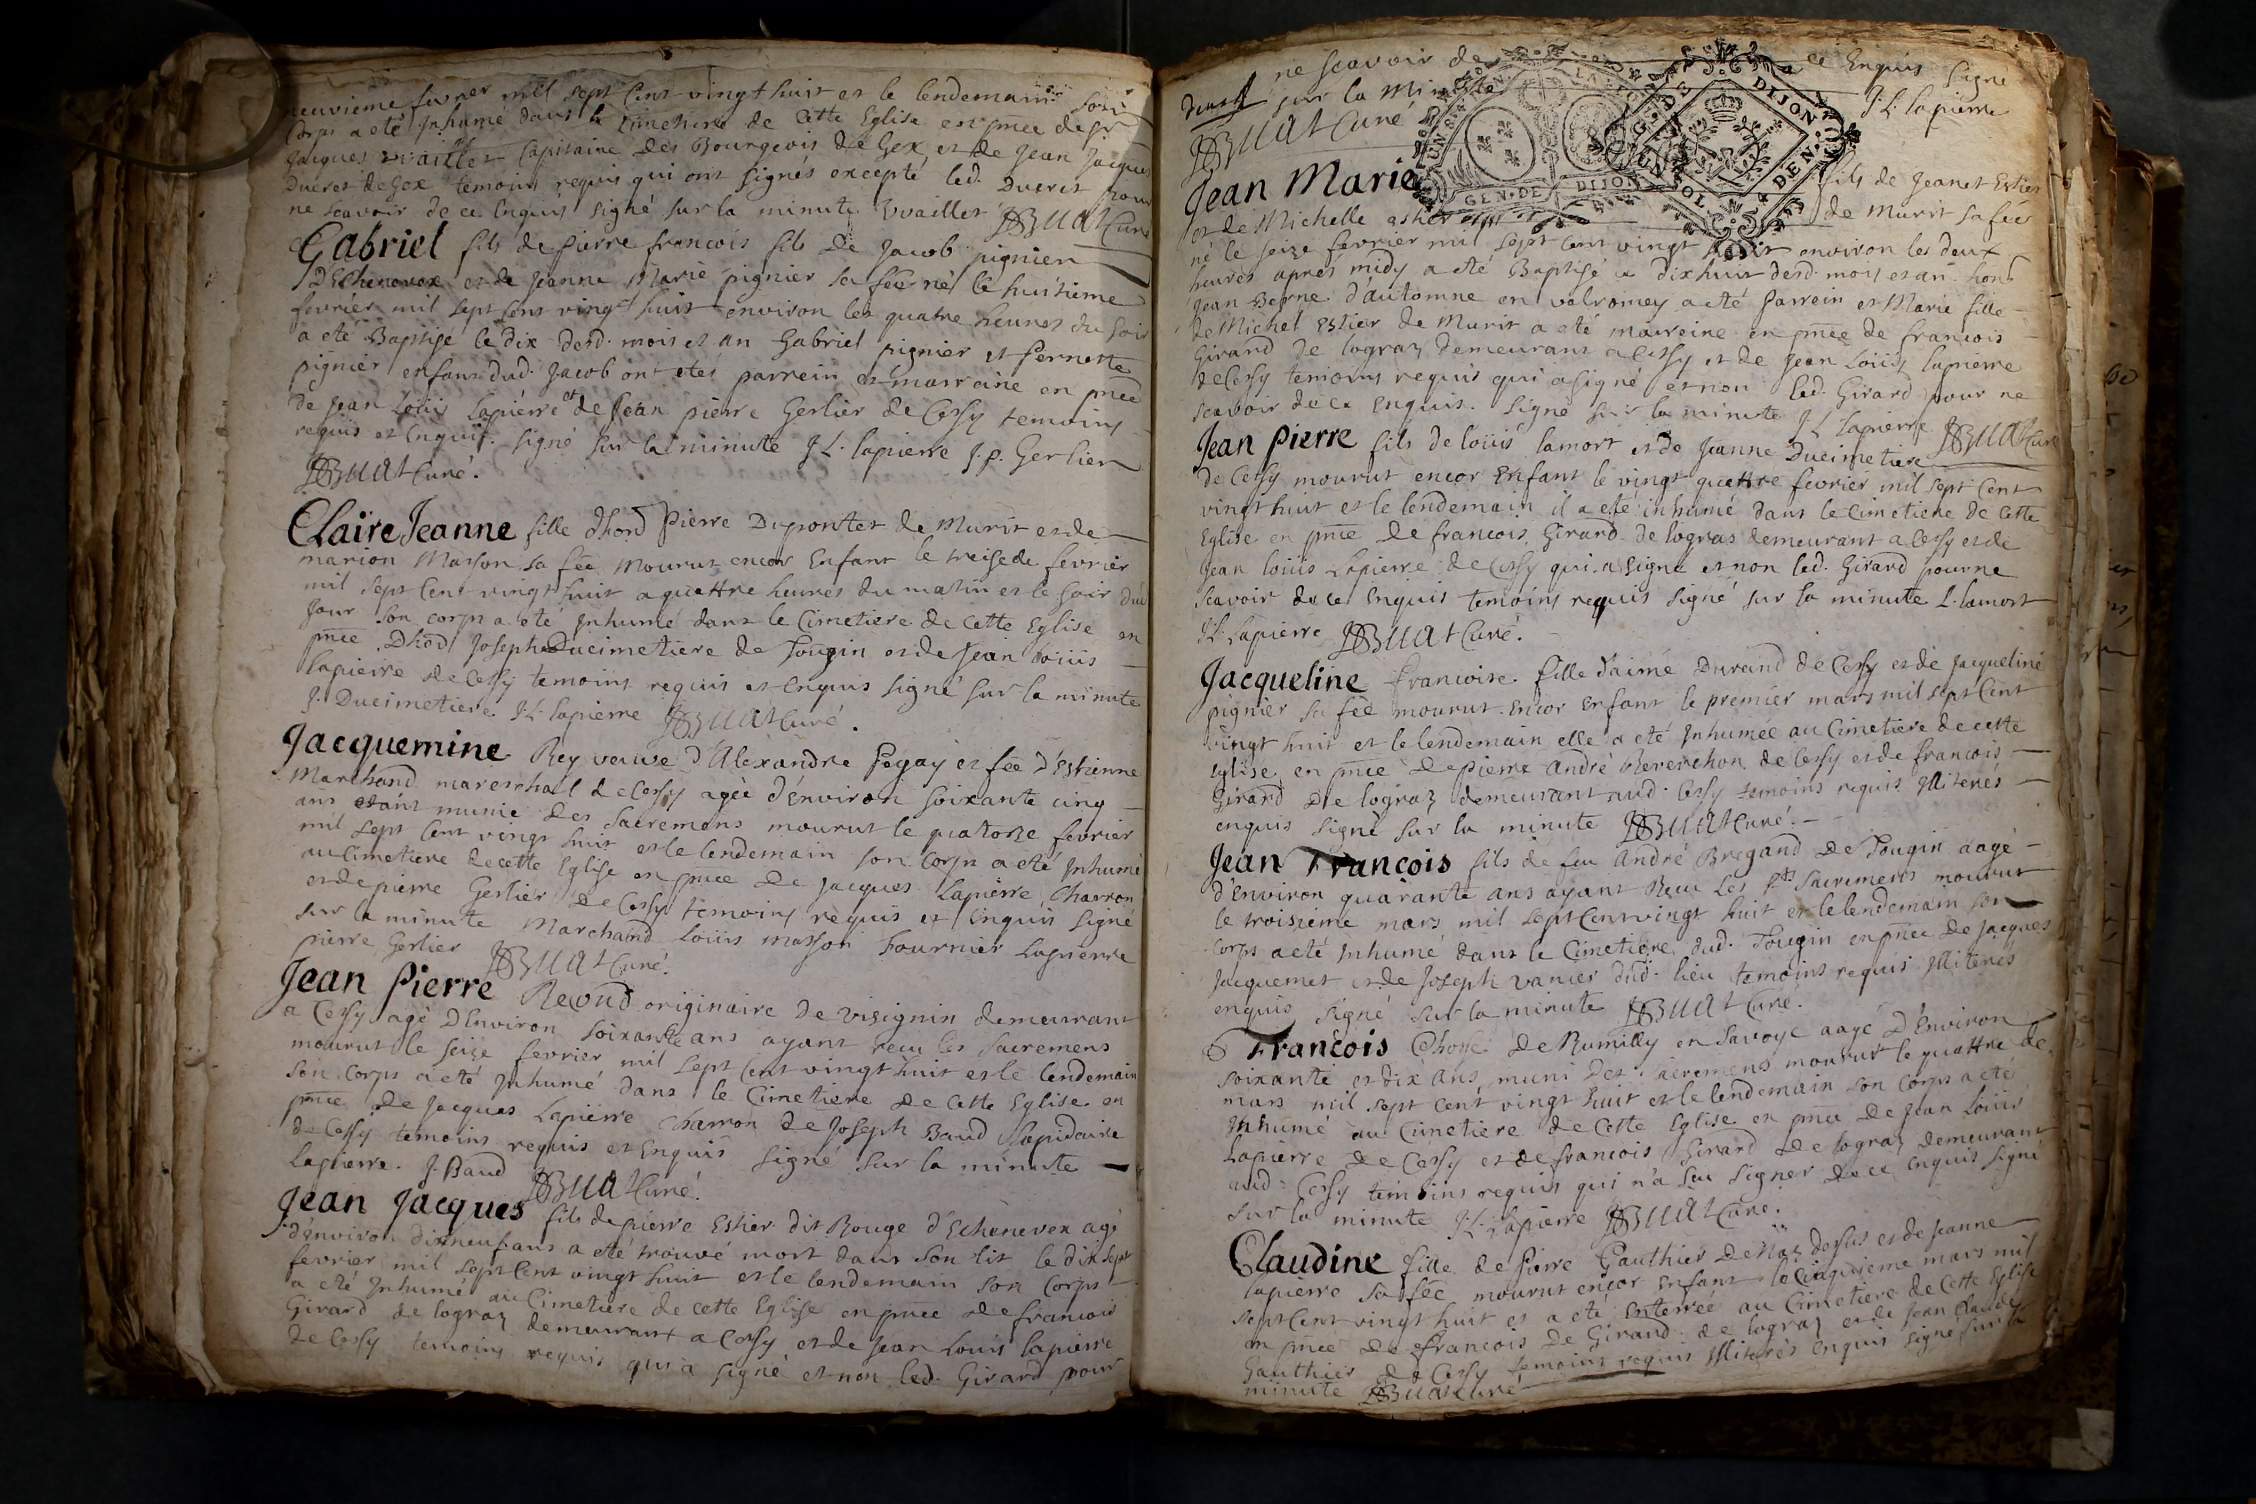 neuvieme fevrier mil sept Cent vingt huit et le lendemain son
Corps a eté Inhumé dans le Cimetiere de Cette Eglise en pnce de
Jacques vuaillet Capitaine des Bourgeois de Gex et de Jean Jacques
Ducret de Gex temoins requis qui ont signés excepté led. Ducret pour
ne scavoir de ce Enquis signé sur la minute Vvaillet JBuat Curé
Gabriel fils de pierre francois fils de Jacob pignier
D'Echenevex et de Jeanne Marie pignier sa fée né le huitieme
fevrier mil sept Cent vingt huit environ les quatre heures du soir
a eté Baptisé le dix desd. mois et an Gabriel pignier et Pernette
pignier enfans dud. Jacob ont etés parrein et marraine en pnce
de Jean Loüis Lapierre et de Jean pierre Gerlier de Cessy temoins
requis et Enquis. signé sur la minute J L. lapierre J. p. Gerlier
JBuat Curé.
Claire Jeanne fille d'hod Pierre Dupontet de Murit et de
marion Masson sa fée mourut encor Enfant le treise de fevrier
mil sept Cent vingt huit a quattre heures du matin et le soir dud
Jour son corps a eté Inhumé dans le Cimetiere de Cette Eglise en
pnce D'hod Joseph Ducimetiere de Tougin et de Jean Loüis
Lapierre de Cessy temoins requis et Enquis signé sur la minute
J. Ducimetiere J L. lapierre JBuat Curé.
Jacquemine Rey veuve d'Alexandre Pegay et fée d'Estienne
Marchand mareschall de Cessy agée d'Environ soixante cinq
ans etant munie des sacremens mourut le quatorze fevrier
mil sept Cent vingt huit et le lendemain son Corps a eté Inhumé
au Cimetiere de cette Eglise en pnce de Jacques Lapierre Charron
et de pierre Gerlier de Cessy temoins requis et Enquis signé
sur la minute Marchand Loüis Masson Fournier Lapierre
pierre Gerlier JBuat Curé.
Jean Pierre originaire de visignin demeurant
a Cessy agé D'Environ soixante ans ayant recu les sacremens
mourut le seize fevrier mil sept Cent vingt huit et le lendemain
son Corps a eté Inhumé dans le Cimetiere de Cette Eglise en
pnce de Jacques Lapierre Charron de Joseph Baud Lapidaire
de Cessy temoins requis et Enquis signé sur la minute
Lapierre. J. Baud JBuat Curé.
Jean Jacques fils de pierre Estier dit Rouge d'Echenevex agé
d'environ dixneuf ans a eté trouvé mort dans son lit le dix sept
fevrier mil sept Cent vingt huit et le lendemain son Corps
a eté Inhumé au Cimetiere de cette Eglise en pnce de francois
Girard de lograz demeurant a Cessy et de Jean Loüis lapierre
de Cessy temoins requis qui a signé et non led. Girard pour
ne scavoir de ce Enquis signé
sur la Minute J. L. Lapierre
JBuat Curé
GEN. DE DIJON
G. DE DIJON
UN SOL 4 DEN.
Jean Marie fils de Jeanet Estier
et de Michelle de Murit sa fée
né le seize fevrier mil sept Cent vingt huit environ les deux
heures aprés midy a eté Baptisé le dix huit desd. mois et an hond
Jean Berne d'automne en valromey a eté Parrein et Marie fille
de Michel Estier de Murit a eté maireine en pnce de francois
Girard de lograz demeurant a Cessy et de Jean Loüis lapierre
de Cessy temoins requis qui a signé et non led. Girard pour ne
scavoir de ce Enquis. signé sur la minute J L lapierre JBuat Curé
Jean Pierre fils de loüis lamort et de Jeanne Ducimetiere
de Cessy mourut encor Enfant le vingt quattre fevrier mil sept Cent
vingt huit et le lendemain il a eté inhumé dans le Cimetiere de Cette
Eglise en pnce de francois Girard de logras demeurant a Cessy et de
Jean loüis Lapierre de Cessy qui a signé et non led. Girard pour ne
scavoir de ce Enquis temoins requis signé sur la minute L. lamort
J L. Lapierre JBuat Curé.
Jacqueline Francoise fille d'aimé Durand de Cessy et de Jacqueline
pignier sa fée mourut encor Enfant le premier mars mil sept Cent
vingt huit et le lendemain elle a eté Inhumée au Cimetiere de cette
Eglise en pnce de pierre andré Reverchon de Cessy et de francois
Girard de lograz demeurant aud. Cessy temoins requis Illiterés
enquis signé sur la minute JBuat Curé.
Jean Francois fils de feu andré Bregand de Tougin aagé
d'Environ quarante ans ayant Recu Les sts sacrements mourut
le troisieme mars mil sept Cent vingt huit et le lendemain son
Corps a eté Inhumé dans le Cimetiere dud. Tougin en pnce de Jacques
Jacquemet et de Joseph vanier dud. lieu temoins requis Illiterés
enquis signé sur la minute JBuat Curé.
Francois de Rumilly en Savoye aagé D'Environ
soixante et dix ans muni des sacremens mourut le quattre de
mars mil sept cent vingt huit et le lendemain son Corps a eté
Inhumé au Cimetiere de Cette Eglise en pnce de Jean Loüis
Lapierre de Cessy et de francois Girard de lograz demeurant
aud. Cessy temoins requis qui n'a sçu signer de ce Enquis signé
sur la minute J. L. Lapierre JBuat Curé.
Claudine fille de Pierre Gauthier de Naz dessus et de Jeanne
lapierre sa fée mourut encor enfant le Cinquieme mars mil
sept Cent vingt huit et a eté Enterrée au Cimetiere de Cette Eglise
en pnce de francois de Girard de lograz et de Jean Claude
Gauthier de Cessy temoins requis Illiterés Enquis signé sur la
minute JBuat Curé